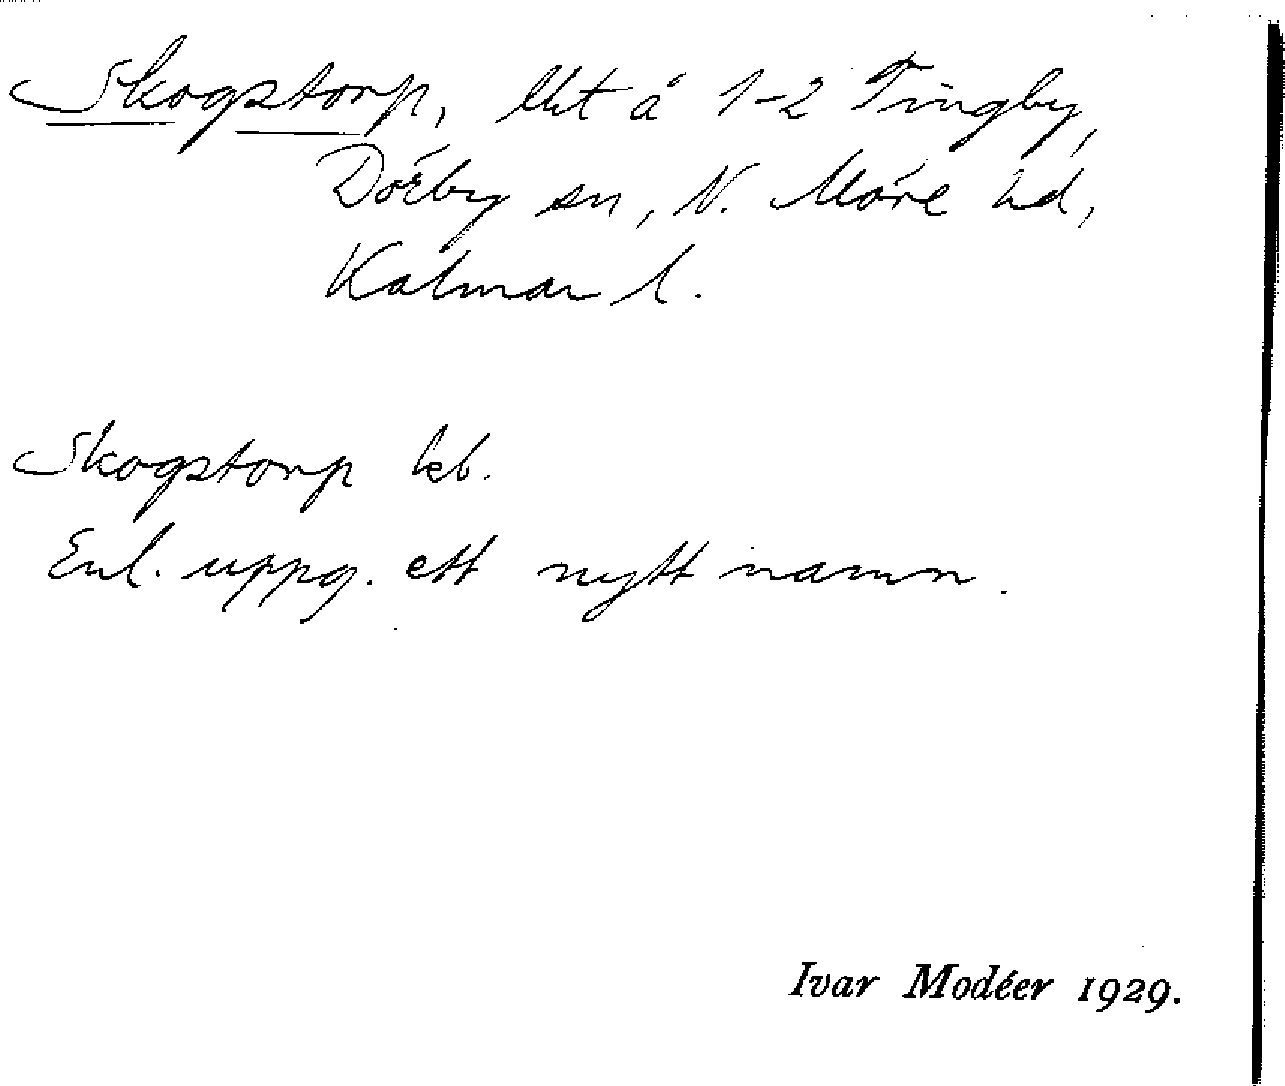 Skogstorp, lht å 1-2 Tingby,
Dörby sn, N. Möre hd,
Kalmar l.
Skogstorp kb.
Enl. uppg. ett nytt namn.
Ivar Modéer 1929.